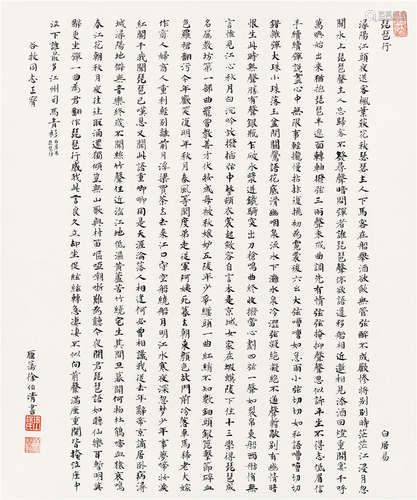 琵琶行
白居易
潯陽江頭夜送客楓葉荻花秋瑟瑟主人下馬客在船舉酒欲飲無管弦醉不成歡慘將別別時茫茫江浸月忽
聞水上琵琶聲主人忘歸客不發尋聲暗問彈者誰琵琶聲停欲語遲移船相近邀相見添酒回燈重開宴千呼
萬喚始出來猶抱琵琶半遮面轉軸撥弦三兩聲未成曲調先有情弦弦掩抑聲聲思似訴平生不得志低眉信
手續續彈說盡心中無限事輕攏慢撚抹復挑初為霓裳後六幺大弦嘈嘈如急雨小弦切切如私語嘈嘈切切
錯雜彈大珠小珠落玉盤間關鶯語花底滑幽咽泉流水下灘水泉冷澀弦凝絕凝絕不通聲暫歇別有幽情暗
恨生此時無聲勝有聲銀瓶乍破水漿迸鐵騎突出刀槍鳴曲終收撥當心劃四弦一聲如裂帛東船西舫悄無
言惟見江心秋月白沉吟放撥插弦中整頓衣裳起斂容自言本是京城女家在蝦蟆陵下住十三學得琵琶成
名屬教坊第一部曲罷常教善才伏妝成每被秋娘妒五陵年少爭纏頭一曲紅綃不知數鈿頭銀篦擊節碎血
色羅裙翻酒污今年歡笑復明年秋月春風等閒度弟走從軍阿姨死暮去朝來顏色故門前冷落車馬稀老大嫁
作商人婦商人重利輕別離前月浮梁買茶去去來江口守空船繞船明月江水寒夜深忽夢少年事夢啼妝淚
紅闌干我聞琵琶已嘆息又聞此語重唧唧同是天涯淪落人相逢何必曾相識我從去年辭帝京謫居臥病潯陽
城潯陽地僻無音樂終歲不聞絲竹聲住近湓江地低濕黃蘆苦竹繞宅生其間旦暮聞何物杜鵑啼血猿哀鳴
春江花朝秋月夜往往取酒還獨傾豈無山歌與村笛嘔啞嘲哳難為聽今夜聞君琵琶語如聽仙樂耳暫明莫
辭更坐彈一曲為君翻作琵琶行感我此言良久立卻坐促弦弦轉急淒淒不似向前聲滿座重聞皆掩泣座中
泣下誰最多江州司馬青衫濕
谷牧同志正腕
雁蕩徐伯清書